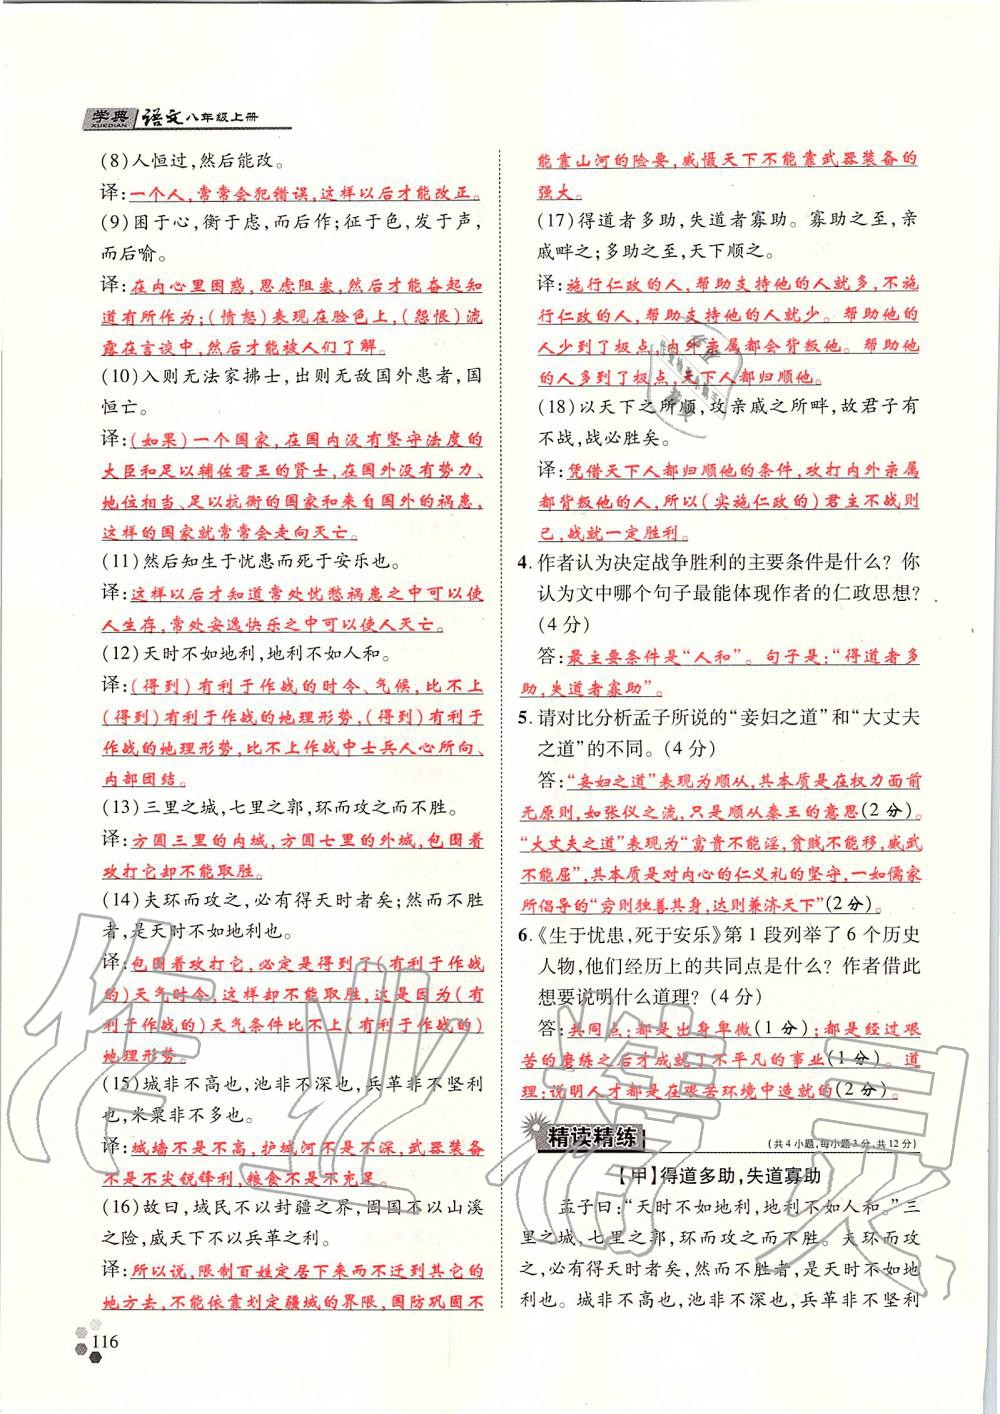 学典
XUEDIAN
语文八年级上册
(8)人恒过,然后能改。
译:一个人,常常会犯错误,这样以后才能改正。
(9)困于心,衡于虑,而后作;征于色,发于声,
而后喻。
译:在内心里困惑,思虑阻塞,然后才能奋起知
道有所作为;(愤怒)表现在脸色上,(怨恨)流
露在言谈中,然后才能被人们了解。
(10)入则无法家拂士,出则无敌国外患者,国
恒亡。
译:(如果)一个国家,在国内没有坚守法度的
大臣和足以辅佐君王的贤士,在国外没有势力、
地位相当、足以抗衡的国家和来自国外的祸患,
这样的国家就常常会走向灭亡。
(11)然后知生于忧患而死于安乐也。
译:这样以后才知道常处忧愁祸患之中可以使
人生存,常处安逸快乐之中可以使人灭亡。
(12)天时不如地利,地利不如人和。
译:(得到)有利于作战的时令、气候,比不上
(得到)有利于作战的地理形势,(得到)有利于
作战的地理形势,比不上作战中士兵人心所向、
内部团结。
(13)三里之城,七里之郭,环而攻之而不胜。
译:方圆三里的内城,方圆七里的外城,包围着
攻打它却不能取胜。
(14)夫环而攻之,必有得天时者矣;然而不胜
者,是天时不如地利也。
译:包围着攻打它,必定是得到了(有利于作战
的)天气时令,这样却不能取胜,这是因为(有
利于作战的)天气条件比不上(有利于作战的)
地理形势。
(15)城非不高也,池非不深也,兵革非不坚利
也,米粟非不多也。
译:城墙不是不高,护城河不是不深,武器装备
不是不尖锐锋利,粮食不是不充足。
(16)故曰,域民不以封疆之界,固国不以山溪
之险,威天下不以兵革之利。
译:所以说,限制百姓定居下来而不迁到其它的
地方去,不能依靠划定疆域的界限,国防巩固不
116
能靠山河的险要,威慑天下不能靠武器装备的
强大。
(17)得道者多助,失道者寡助。寡助之至,亲
戚畔之;多助之至,天下顺之。
译:施行仁政的人,帮助支持他的人就多,不施
行仁政的人,帮助支持他的人就少。帮助他的
人少到了极点,内外亲属都会背叛他。帮助他
的人多到了极点,天下人都归顺他。
(18)以天下之所顺,攻亲戚之所畔,故君子有
不战,战必胜矣。
译:凭借天下人都归顺他的条件,攻打内外亲属
都背叛他的人,所以(实施仁政的)君主不战则
已,战就一定胜利。
4. 作者认为决定战争胜利的主要条件是什么?你
认为文中哪个句子最能体现作者的仁政思想?
(4分)
答:最主要条件是“人和”。句子是:“得道者多
助,失道者寡助”。
5. 请对比分析孟子所说的“妾妇之道”和“大丈夫
之道”的不同。(4分)
答:“妾妇之道”表现为顺从,其本质是在权力面前
无原则,如张仪之流,只是顺从秦王的意思(2分)。
“大丈夫之道”表现为“富贵不能淫,贫贱不能移,威武
不能屈”,其本质是对内心的仁义礼的坚守,一如儒家
所倡导的“穷则独善其身,达则兼济天下”(2分)。
6.《生于忧患,死于安乐》第1段列举了6个历史
人物,他们经历上的共同点是什么?作者借此
想要说明什么道理?(4分)
答:共同点:都是出身卑微(1分);都是经过艰
苦的磨练之后才成就了不平凡的事业(1分)。道
理:说明人才都是在艰苦环境中造就的(2分)。
精读精练
(共4小题,每小题3分,共12分)
【甲】得道多助,失道寡助
孟子曰:“天时不如地利,地利不如人和。”三
里之城,七里之郭,环而攻之而不胜。夫环而攻
之,必有得天时者矣,然而不胜者,是天时不如地
利也。城非不高也,池非不深也,兵革非不坚利
作业精灵